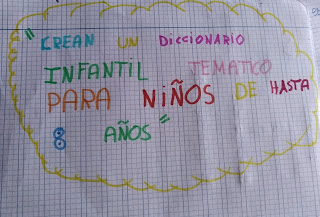 "CREAN UN DICCIONARIO
INFANTIL TEMATICO
PARA NIÑOS DE HASTA
8 AÑOS"